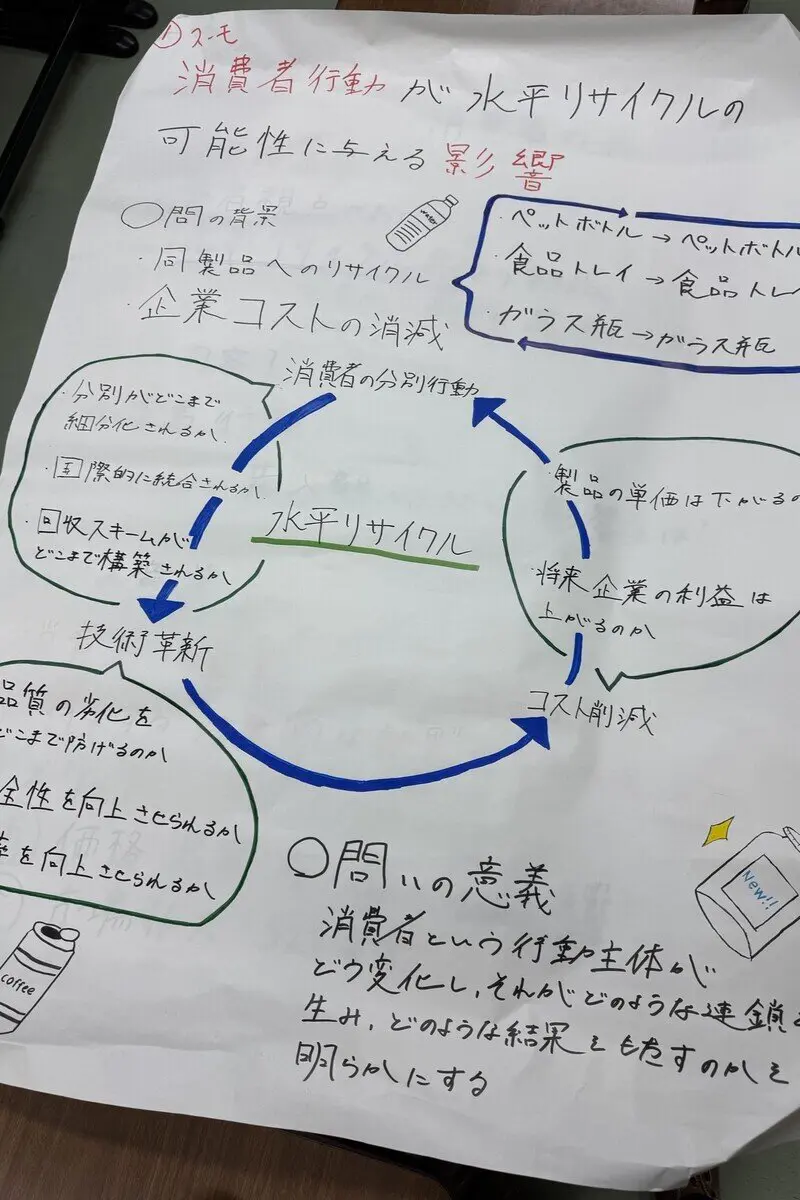 ① スーモ
消費者行動が水平リサイクルの
可能性に与える影響
○問の背景
・同製品へのリサイクル
・企業コストの消減
water
・ペットボトル→ペットボトル
・食品トレイ→食品トレ
・ガラス瓶→ガラス瓶
消費者の分別行動
・分別がどこまで
細分化されるか
・国際的に統合されるか
・回収スキームが
どこまで構築されるか
水平リサイクル
・製品の単価は下がるの
・将来企業の利益は
上がるのか
技術革新
コスト削減
品質の劣化を
どこまで防げるのか
全性を向上させられるか
率を向上させられるか
○問いの意義
消費者という行動主体が
どう変化し、それがどのような連鎖を
生み、どのような結果をもたすのかを
明らかにする
New!!
coffee